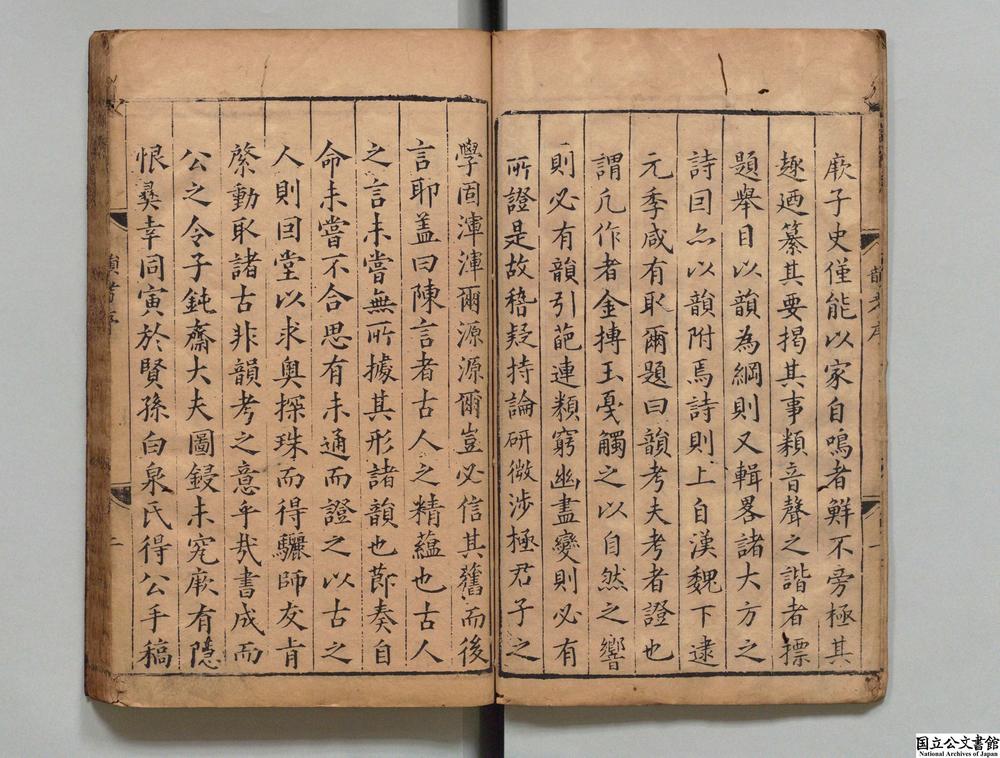 厥子史僅能以家自鳴者鮮不旁極其
趣廼纂其要揭其事類音聲之諧者摽
題舉目以韻為綱則又輯畧諸大方之
詩回亦以韻附焉詩則上自漢魏下逮
元季咸有取爾題曰韻考夫考者證也
謂凡作者金摶玉戛觸之以自然之響
則必有韻引葩連類窮幽盡變則必有
所證是故稽疑持論研微涉極君子之
韻考序
一
學固渾渾爾源源爾豈必信其舊而後
言耶盖曰陳言者古人之精蘊也古人
之言未嘗無所據其形諸韻也節奏自
命未嘗不合思有未通而證之以古之
人則回堂以求奥探珠而得驪師友肯
綮動取諸古非韻考之意乎哉書成而
公之令子鈍齋大夫圖鋟未究厥有隱
恨曩幸同寅於賢孫白泉氏得公手稿
韻考序
二
国立公文書館
National Archives of Japan